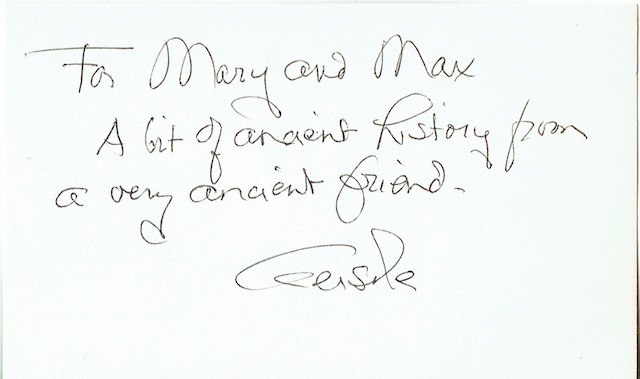 For Mary and Max
A bit of ancient history from
a very ancient friend.